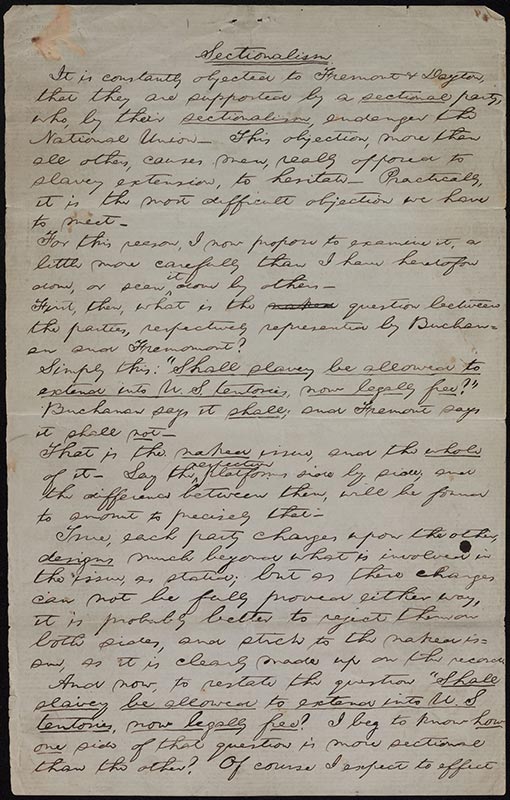 Sectionalism
It is constantly objected to Fremont & Dayton,
that they are supported by a sectional party,
who, by their sectionalism, endanger the
National Union— This objection, more than
all others, causes men, really opposed to
slavery extension, to hesitate— Practically,
it is the most difficult objection we have
to meet—
For this reason, I now propose to examine it, a
little more carefully than I have heretofore
done, or seen it done by others—
First, then, what is the naked question between
the parties, respectively represented by Buchan=
an and Fremomont?
Simply this: "Shall slavey be allowed to
extend into U. S. tentories, now legally free?"
Buchanan says it shall; and Fremont says
it shall not—
That is the naked issue, and the whole
of it— Lay the respective platforms side by side; and
the difference between them, will be found
to amount to precisely that—
True, each party charges upon the other,
designs much beyond what is involved in
the issue, as stated; but as these charges
can not be fully proved either way,
it is probably better to reject them on
both sides, and stick to the naked is=
sue, as it is clearly made up on the record
And now, to restate the question "Shall
slavey be allowed to extend into U. S.
tentories, now legally free? I beg to know how
one side of that question is more sectional
than the other? Of course I expect to effect